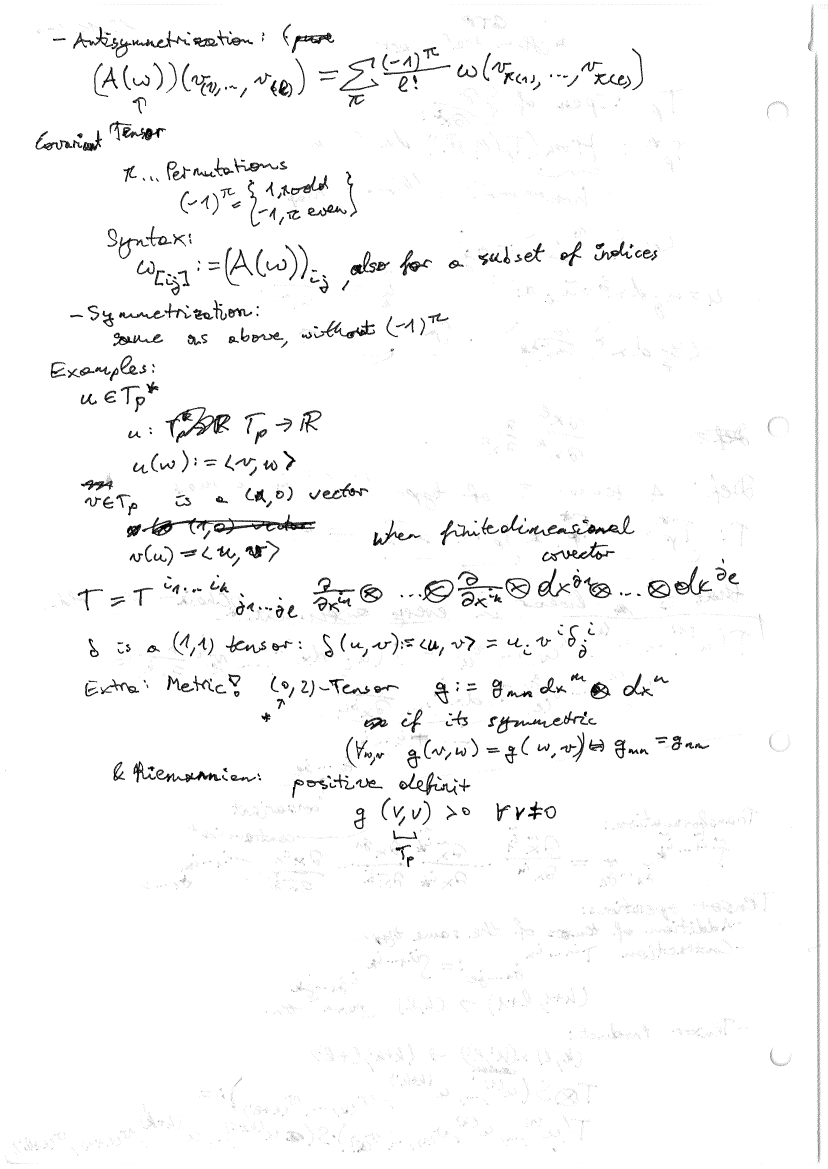 - Antisymmetrization: (pure
(A(ω))(v_(1),..., v_(l)) = Σ_π (-1)^π / l! ω(v_π(1), ..., v_π(l))
↑
Covariant Tensor
π... Permutations
(-1)^π = { 1, π odd }
{ -1, π even }
Syntax:
ω_[ij] := (A(ω))_ij, also for a subset of indices
- Symmetrization:
same as above, without (-1)^π
Examples:
u ∈ T_p*
u: T_p → ℝ
u(w) := <v, w>
v ∈ T_p is a (1,0) vector
is (1,0) vector
v(u) = <u, v> when finitedimensional
covector
T = T^{i_1...i_k}_{j_1...j_l} ∂/∂x^{i_1} ⊗ ... ⊗ ∂/∂x^{i_k} ⊗ dx^{j_1} ⊗ ... ⊗ dx^{j_l}
δ is a (1,1) tensor: δ(u,v) := <u, v> = u_i v^i δ_j^i
Extra: Metric! (0,2)-Tensor g := g_mn dx^m ⊗ dx^n
* ↑
if its symmetric
(∀_{w,v} g(v,w) = g(w,v)) ⇔ g_mn = g_nm
& Riemannien: positive definit
g (v,v) > 0 ∀ v ≠ 0
T_p